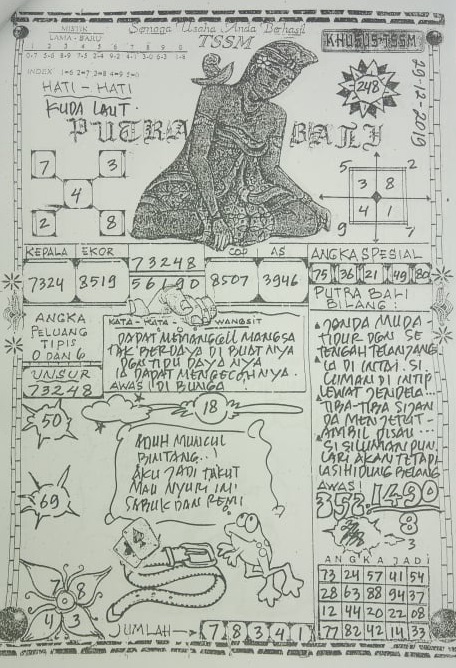 Semoga Usaha Anda Berhasil
MISTIK
LAMA - BARU
TSSM
KHUSUS TSSM
1 2 3 4 5 6 7 8 9 0
INDEX 1=6 2=7 3=8 4=9 5=0
HATI - HATI
KUDA LAUT.
29-12-2019
248
PUTRA BALI
7 3
4
2 8
5 2
3 8
4 1
9 7
KEPALA EKOR
7324 8519
73248
56190
COP AS
8507 3946
ANGKA SPESIAL
75 36 21 49 80
ANGKA
PELUANG
TIPIS
0 DAN 6
UNSUR
73248
KATA - KATA WANGSIT
DAPAT MEMANGGIL MANGSA
TAK BERDAYA DI BUAT NYA
DGN TIPU DAYA NYA
IA DAPAT MENGECOHNYA.
AWAS! DI BUNGA
PUTRA BALI
BILANG:
JANDA MUDA -
TIDUR DGN SE
TENGAH TELANJANG
IA DI INTAI. SI
LUMAN DI INTIP
LEWAT JENDELA...
TIBA-TIBA SIJAN
DA MENJERIT -
AMBIL PISAU...
SI SILUMAN PUN
LARI AKAN TETAPI
LASIHIDUNG BELANG
AWAS!
352.1490
8
3
18
50
69
ADUH MUNCUL
BINTANG..!
AKU JADI TAKUT
MAU NYURI INI
SABUK DAN REMI
7 8
4 3
JUMLAH 7 8 3 4 1
ANGKA JADI
73 24 57 41 54
28 63 88 94 37
12 44 20 22 08
77 82 42 14 33